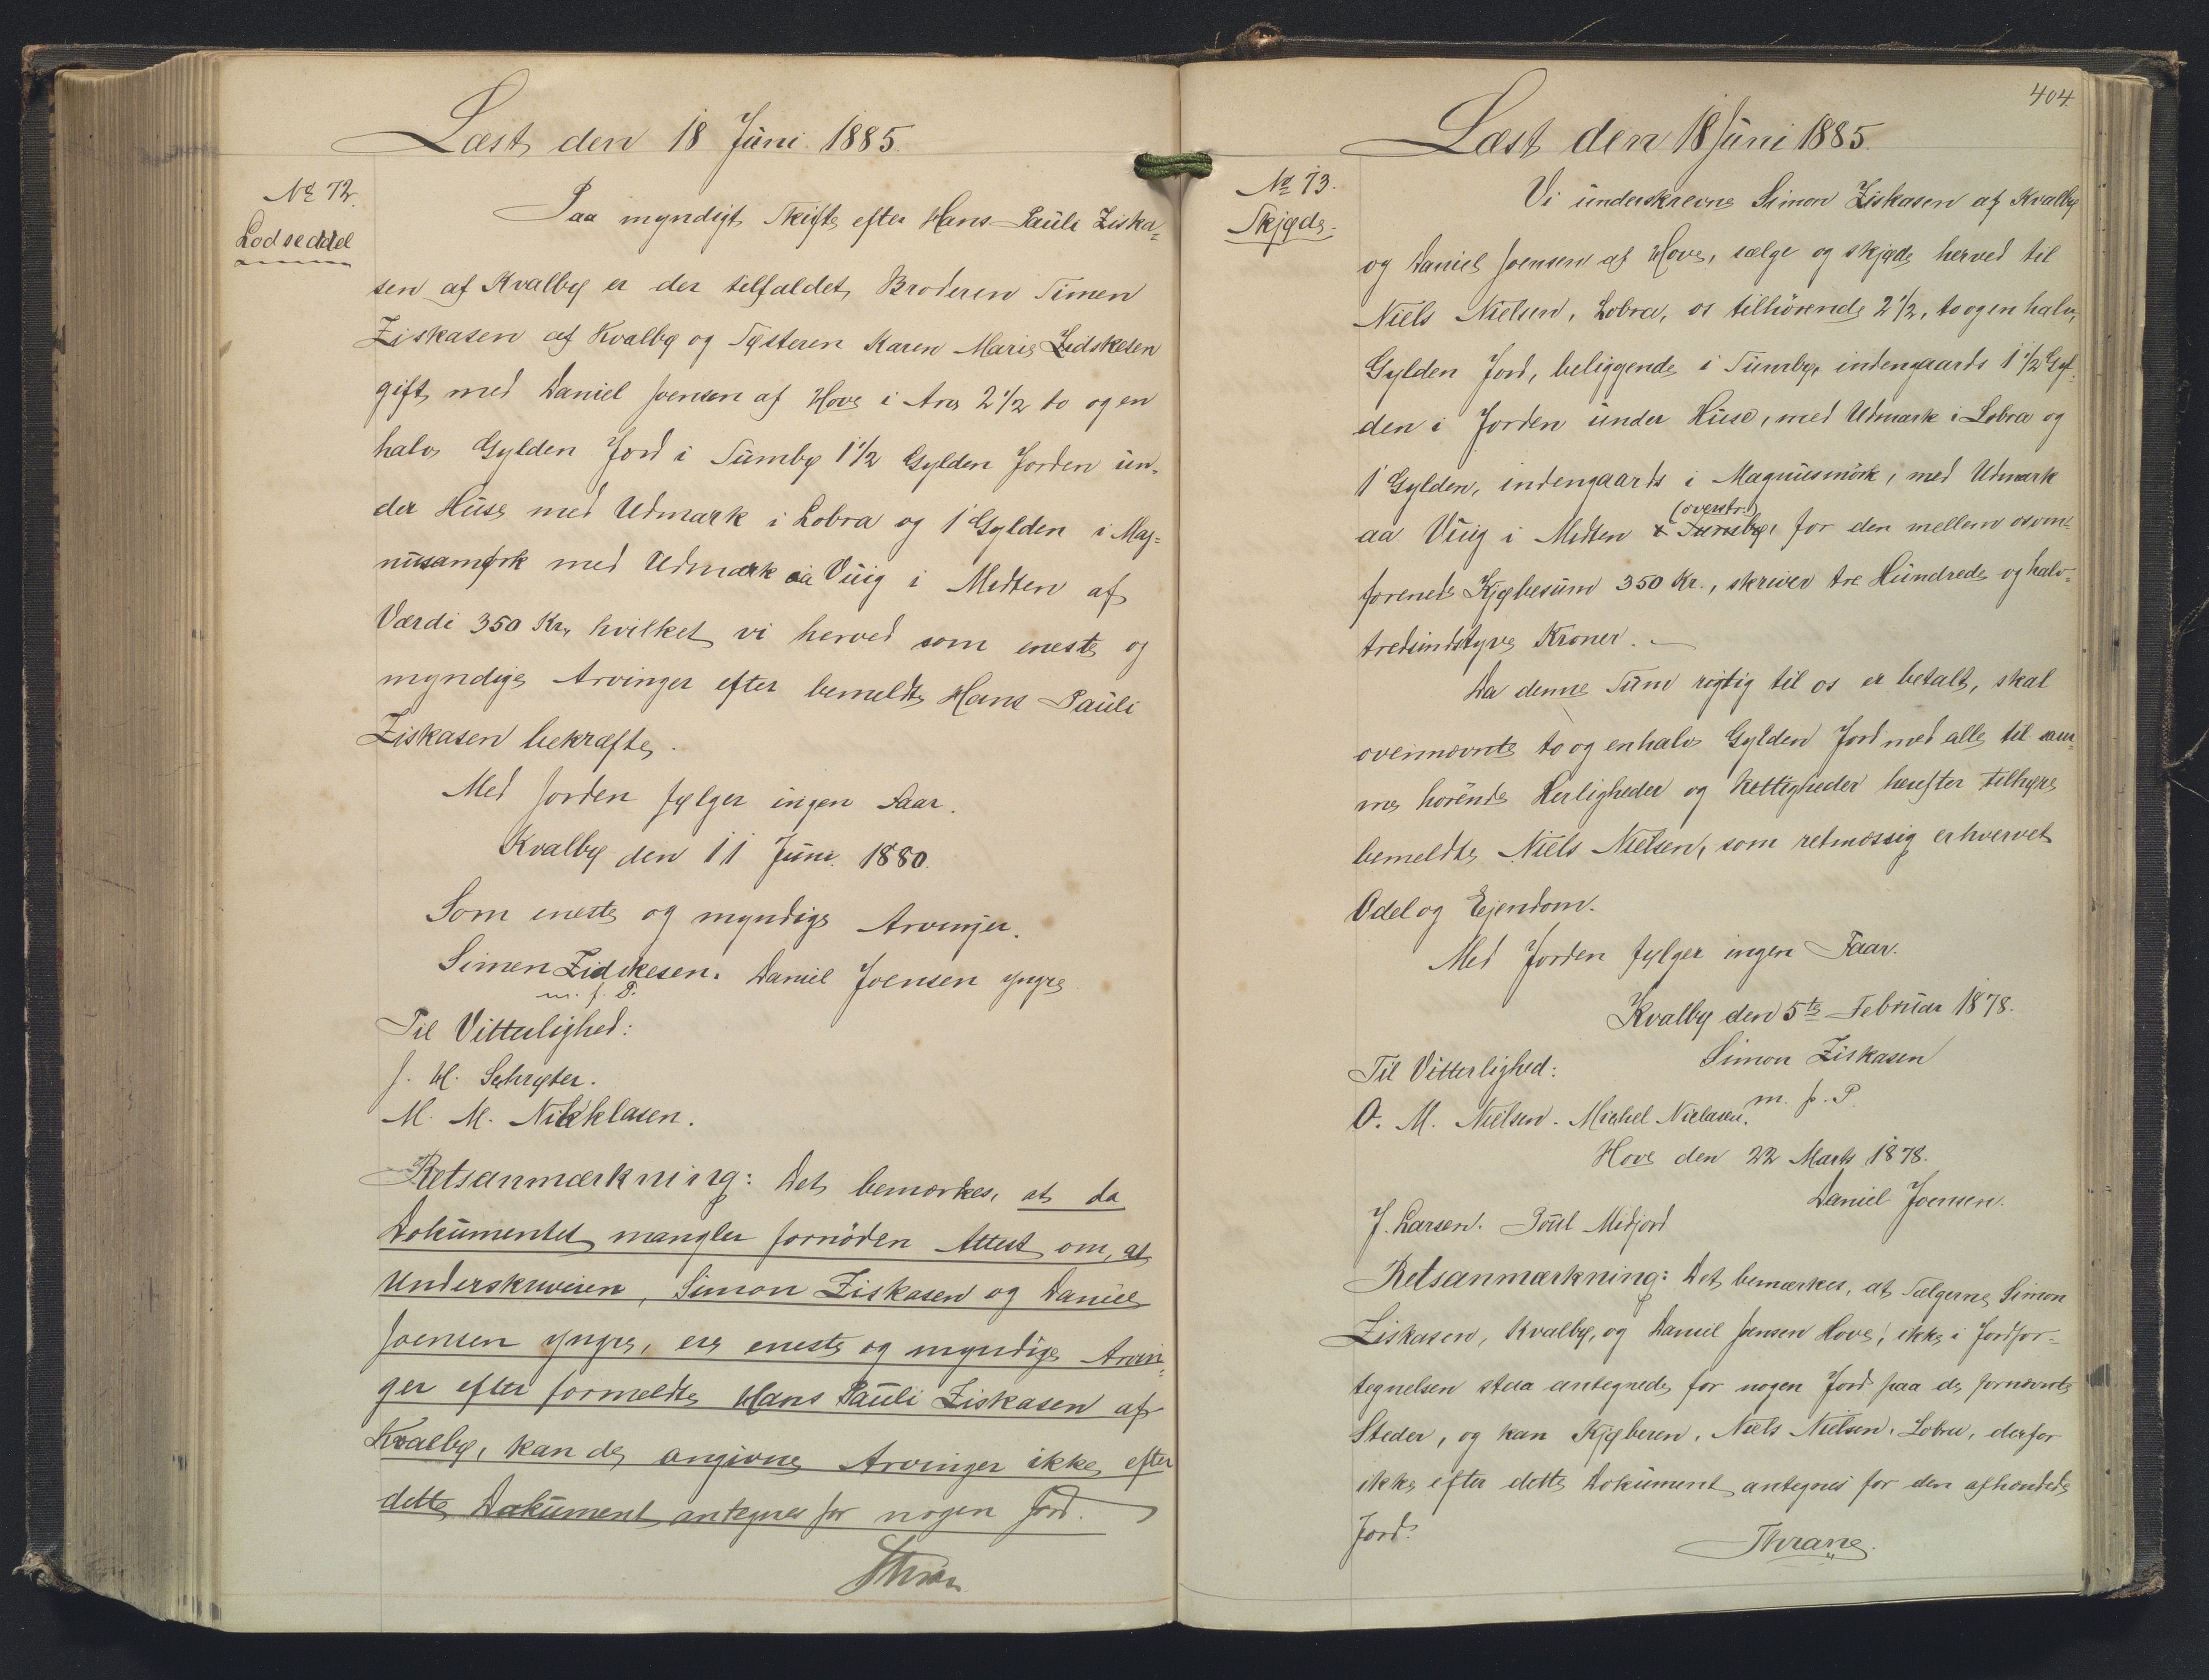 Læst den 18 Juni 1885.
No 72.
Lodseddel
Paa myndigt Skifte efter Hans Pauli Ziska=
sen af Kvalbø er der tilfaldet Broderen Simen
Ziskasen af Kvalbø og Søsteren Karen Marie Zidskesen
gift med Daniel Joensen af Hove i Arv 2 1/2 to og en
halv Gylden Jord i Sumbø 1 1/2 Gylden Jorden un=
der Huse med Udmark i Lobra og 1 Gylden i Mag=
nusamørk med Udmark aa Vuig i Midten af
Værdi 350 Kr, hvilket vi herved som eneste og
myndige Arvinger efter bemeldte Hans Pauli
Ziskasen bekræfte.
Med Jorden følger ingen Faar.
Kvalbø den 11 Juni 1880.
Som eneste og myndige Arvinger.
Simen Zidskesen. Daniel Joensen yngre
m. f. P.
Til Vitterlighed:
J. H. Schrøter.
M. M. Nikklasen.
Retsanmærkning: Det bemærkes, at da
Dokumentet mangler fornöden Attest om, at
Underskriveren, Simon Ziskasen og Daniel
Joensen yngre, ere eneste og myndige Arvin=
ger efter formeldte Hans Pauli Ziskasen af
Kvalbø, kan de angivne Arvinger ikke efter
dette Dokument antegnes for nogen Jord.
404.
Læst den 18 Juni 1885.
No 73.
Skjøde.
Vi underskrevne Simon Ziskasen af Kvalbø
og Daniel Joensen af Hove, sælge og skjøde herved til
Niels Nielsen, Lobra, os tilhörende 2 1/2, to og en halv,
Gylden Jord, beliggende i Sumbø, indengaards 1 1/2 Gyl=
den i Jorden under Huse, med Udmark i Lobra og
1 Gylden, indengaards i Magnusmörk, med Udmark
(overstr.)
aa Vuig i Midten i Sumbø, for den mellem os om=
forenede Kjøbesum 350 Kr., skriver tre Hundrede og halv=
tredsindstyve Kroner.
Da denne Sum rigtig til os er betalt, skal
ovennævnte to og en halv Gylden Jord med alle til sam=
me hörende Herligheder og Rettigheder herefter tilhøre
bemeldte Niels Nielsen, som retmæssig erhvervet
Odel og Ejendom.
Med Jorden følger ingen Faar.
Kvalbø den 5te Februar 1878.
Simon Ziskasen
Til Vitterlighed:
m. f. P.
O. M. Nielsen. Michel Niclasen.
Hove den 22 Marts 1878.
Daniel Joensen.
J. Larsen. Poul Midjord
Retsanmærkning: Det bemærkes, at Sælgerne Simon
Ziskasen, Kvalbø, og Daniel Joensen Hove, ikke i Jordfor=
tegnelsen staa antegnede for nogen Jord paa de fornævnte
Steder, og kan Kjøberen, Niels Nielsen, Lobra, derfor
ikke efter dette Dokument antegnes for den afhændede
Jord.
Thrane.